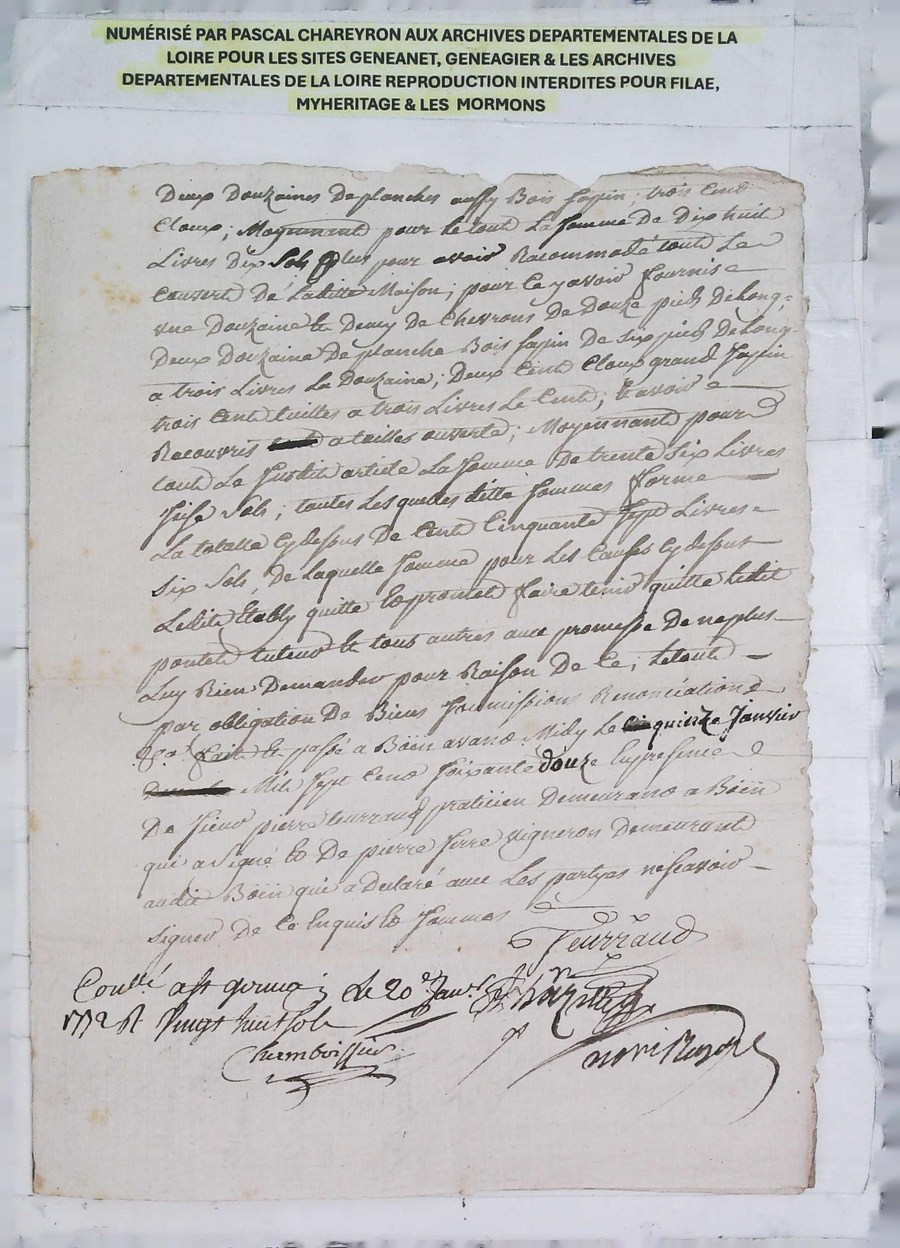 NUMÉRISÉ PAR PASCAL CHAREYRON AUX ARCHIVES DEPARTEMENTALES DE LA
LOIRE POUR LES SITES GENEANET, GENEAGIER & LES ARCHIVES
DEPARTEMENTALES DE LA LOIRE REPRODUCTION INTERDITES POUR FILAE,
MYHERITAGE & LES MORMONS
Deux Douzaines De planches aussy Bois sapin; trois Cent
Cloux; Moyennant pour le tout La somme De Dix huit
Livres Dix Sols plus pour avoir Racommodé toute La
Couvert De Laditte Maison; pour ce y avoir fournis
une Douzaine et Demy de Chevrons De Douze pieds De Long,
Deux Douzaine De planche Bois sapin De six pieds De Long
a trois Livres La Douzaine; Deux Cent Cloux grand sapin
trois Cent tuilles a trois Livres Le Cent; et avoir
Recouvris a tuilles ouverte; Moyennant pour
tout Le susdit article La somme De trente six Livres
seise Sols; toutes Lesquelles ditte sommes forme
La totalle cy dessus De Cent Cinquante sept Livres
six sols, De Laquelle somme pour Les Causes cy dessus
Ledit Etably quitte et promet faire tenir quitte Ledit
tuteur et tous autres avec promesse De ne plus
Luy Rien Demander pour Raison De Ce; Le tout
par obligation De Biens soumissions Renonciation
fait et passé a Böen avant Midy Le quinze Janvier
Mil sept cent soixante douze En presence
De sieur pierre teurraud praticien Demeurant a Böen
qui a signé et De pierre vigneron Demeurant
audit Böen qui a Declaré avec Les partyes ne scavoir
signer De Ce Enquis et sommes
Teurraud
Conllé a st germain Le 20e Janv.
1772 R vingt huit sols